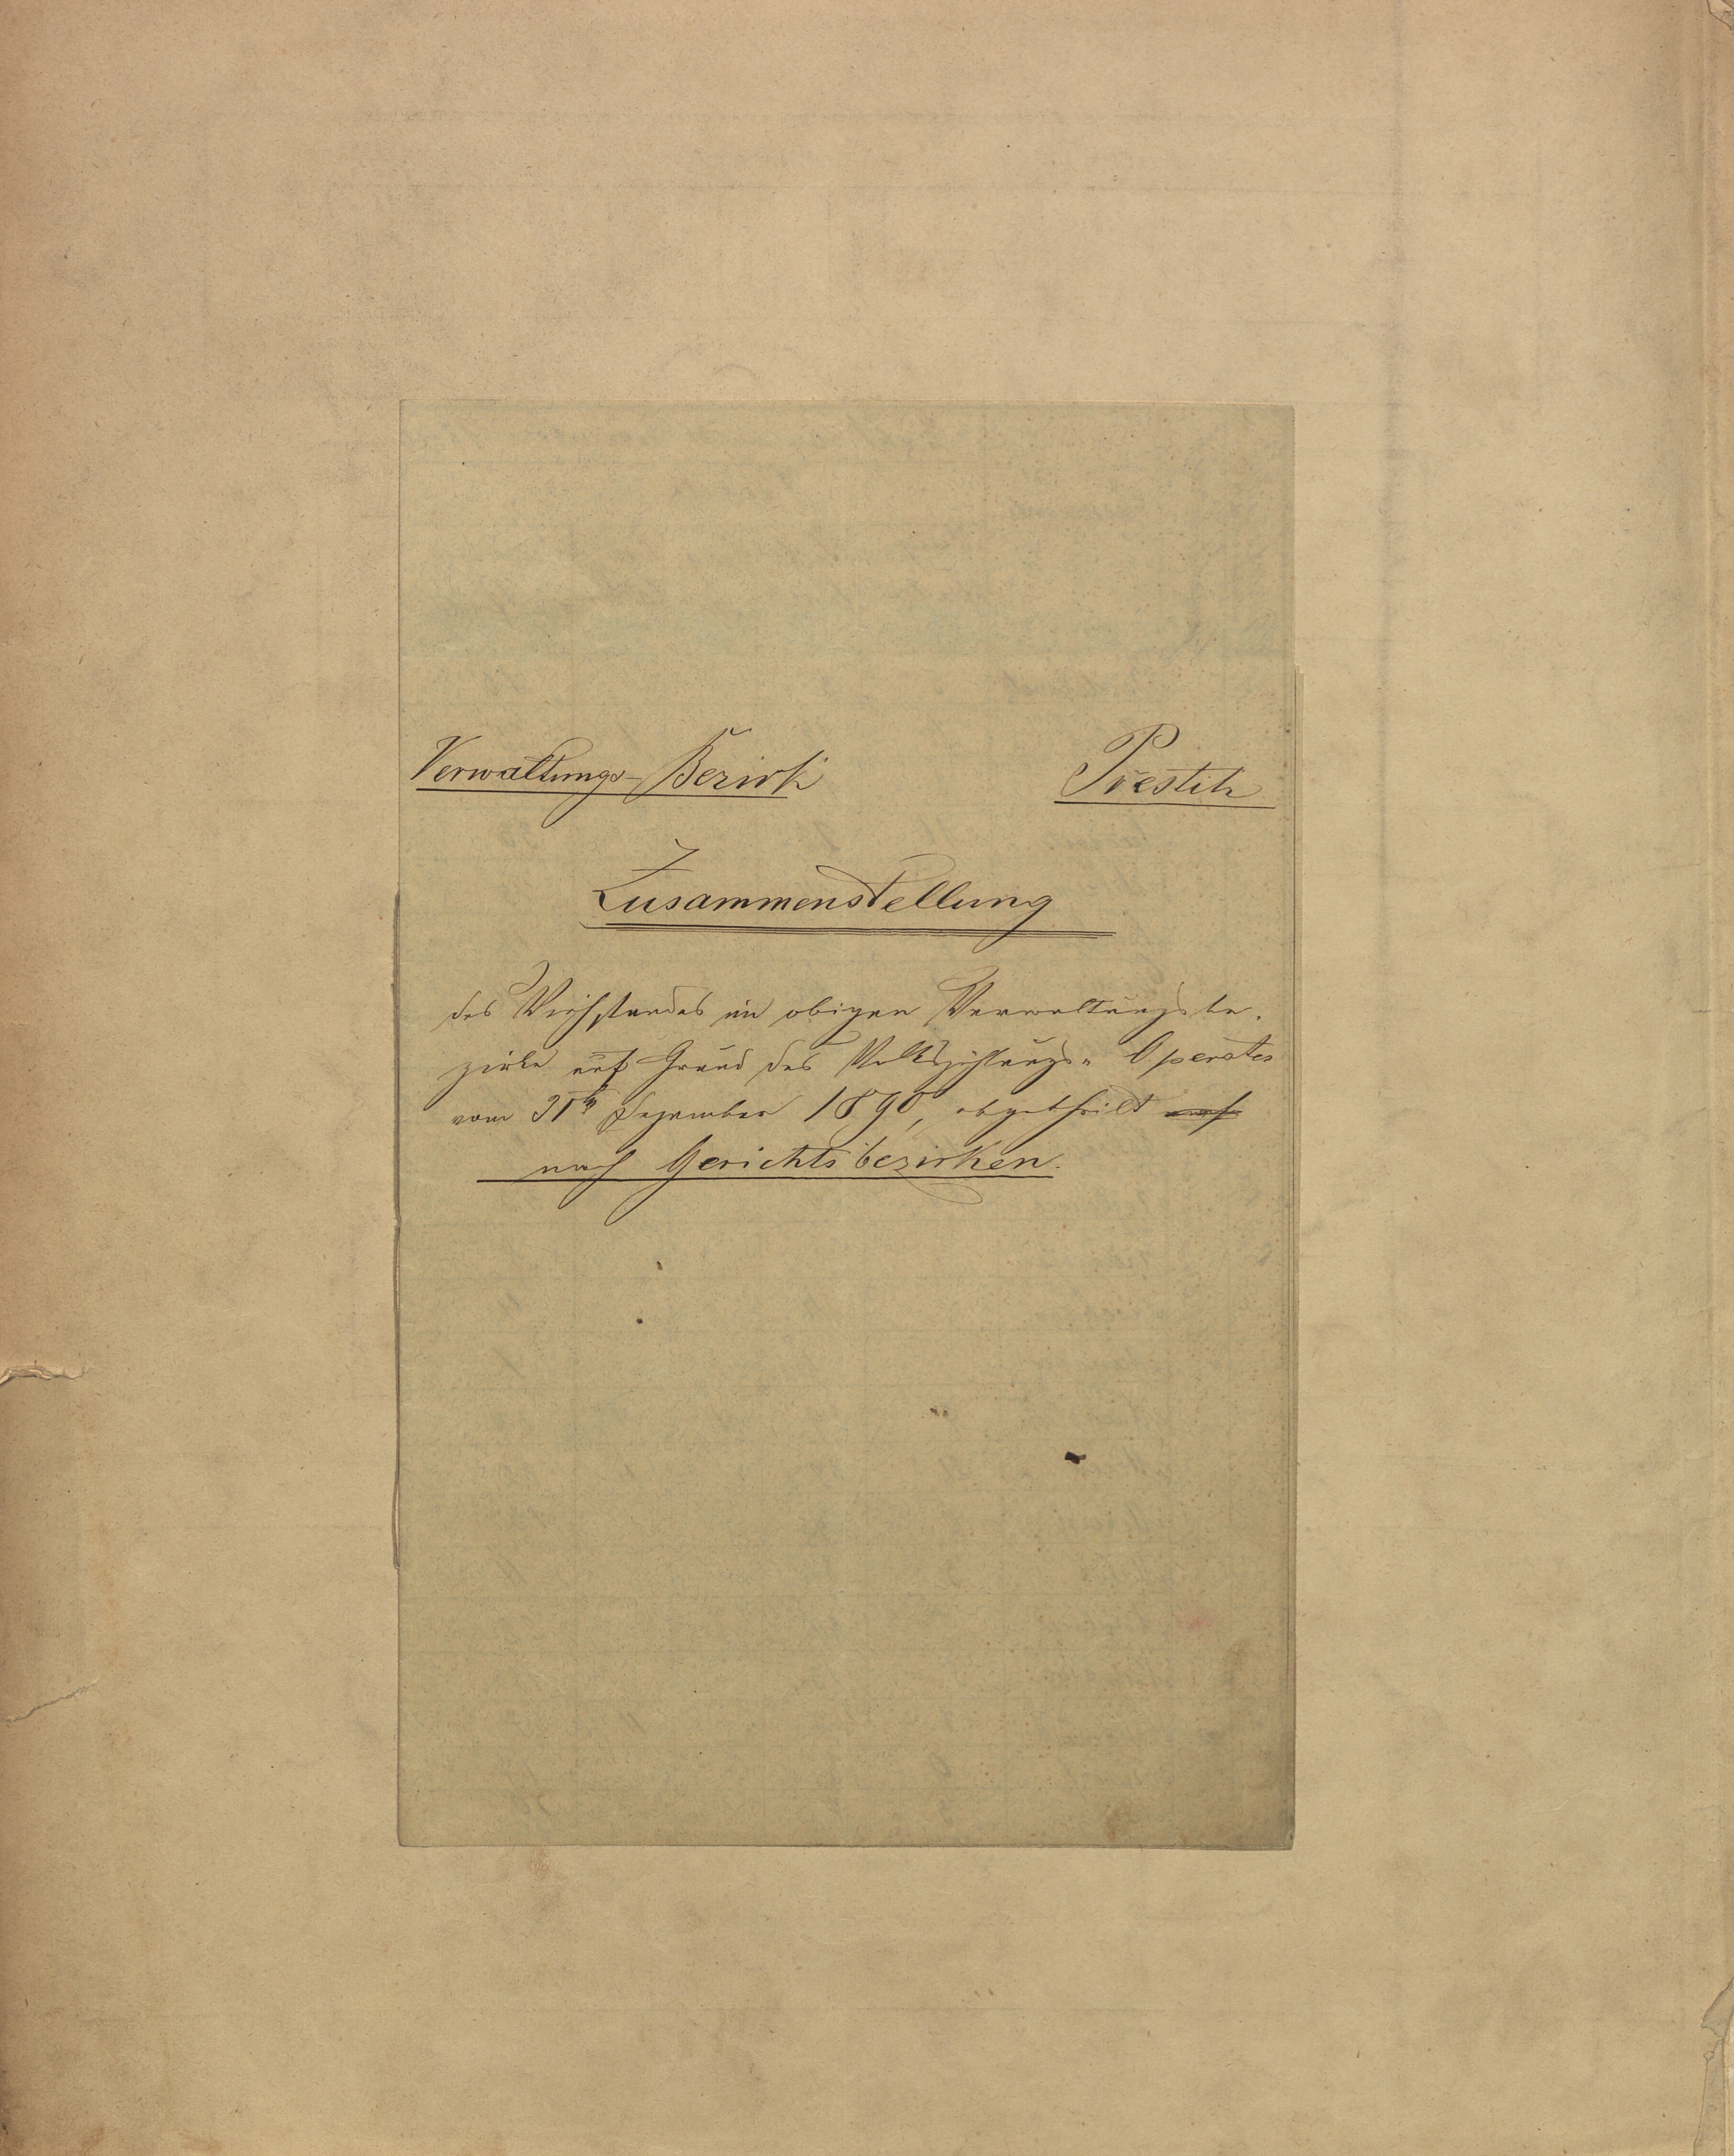 Verwaltungs-Bezirk Přestitz
Zusammenstellung
des Viehstandes im obigen Verwaltungsbe-
zirke auf Grund des Volkszählungs-Operates
vom 31ten Dezember 1890, abgetheilt
nach Gerichtsbezirken.